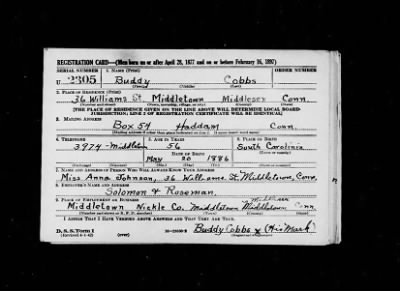 REGISTRATION CARD—(Men born on or after April 28, 1877 and on or before February 16, 1897)
SERIAL NUMBER 1. NAME (Print) ORDER NUMBER
U 2305 Buddy Cobbs
(First) (Middle) (Last)
2. PLACE OF RESIDENCE (Print)
36 Williams St. Middletown Middlesex Conn.
(Number and street) (Town, township, village, or city) (County) (State)
[THE PLACE OF RESIDENCE GIVEN ON THE LINE ABOVE WILL DETERMINE LOCAL BOARD
JURISDICTION; LINE 2 OF REGISTRATION CERTIFICATE WILL BE IDENTICAL]
3. MAILING ADDRESS
Box 54 Haddam Conn
4. TELEPHONE 5. AGE IN YEARS 6. PLACE OF BIRTH
3974-Middletown 56 South Carolina
DATE OF BIRTH
May 20 1886
(Exchange) (Number) (Mo.) (Day) (Yr.) (State or country)
7. NAME AND ADDRESS OF PERSON WHO WILL ALWAYS KNOW YOUR ADDRESS
Miss Anna Johnson, 36 Williams St. Middletown, Conn.
8. EMPLOYER'S NAME AND ADDRESS
Solomon & Roseman
9. PLACE OF EMPLOYMENT OR BUSINESS
Middletown Nickle Co. Middletown Middletown Conn
(Number and street or R. F. D. number) (Town) (County) (State)
I AFFIRM THAT I HAVE VERIFIED ABOVE ANSWERS AND THAT THEY ARE TRUE.
D. S. S. Form 1 Buddy Cobbs x (His Mark)